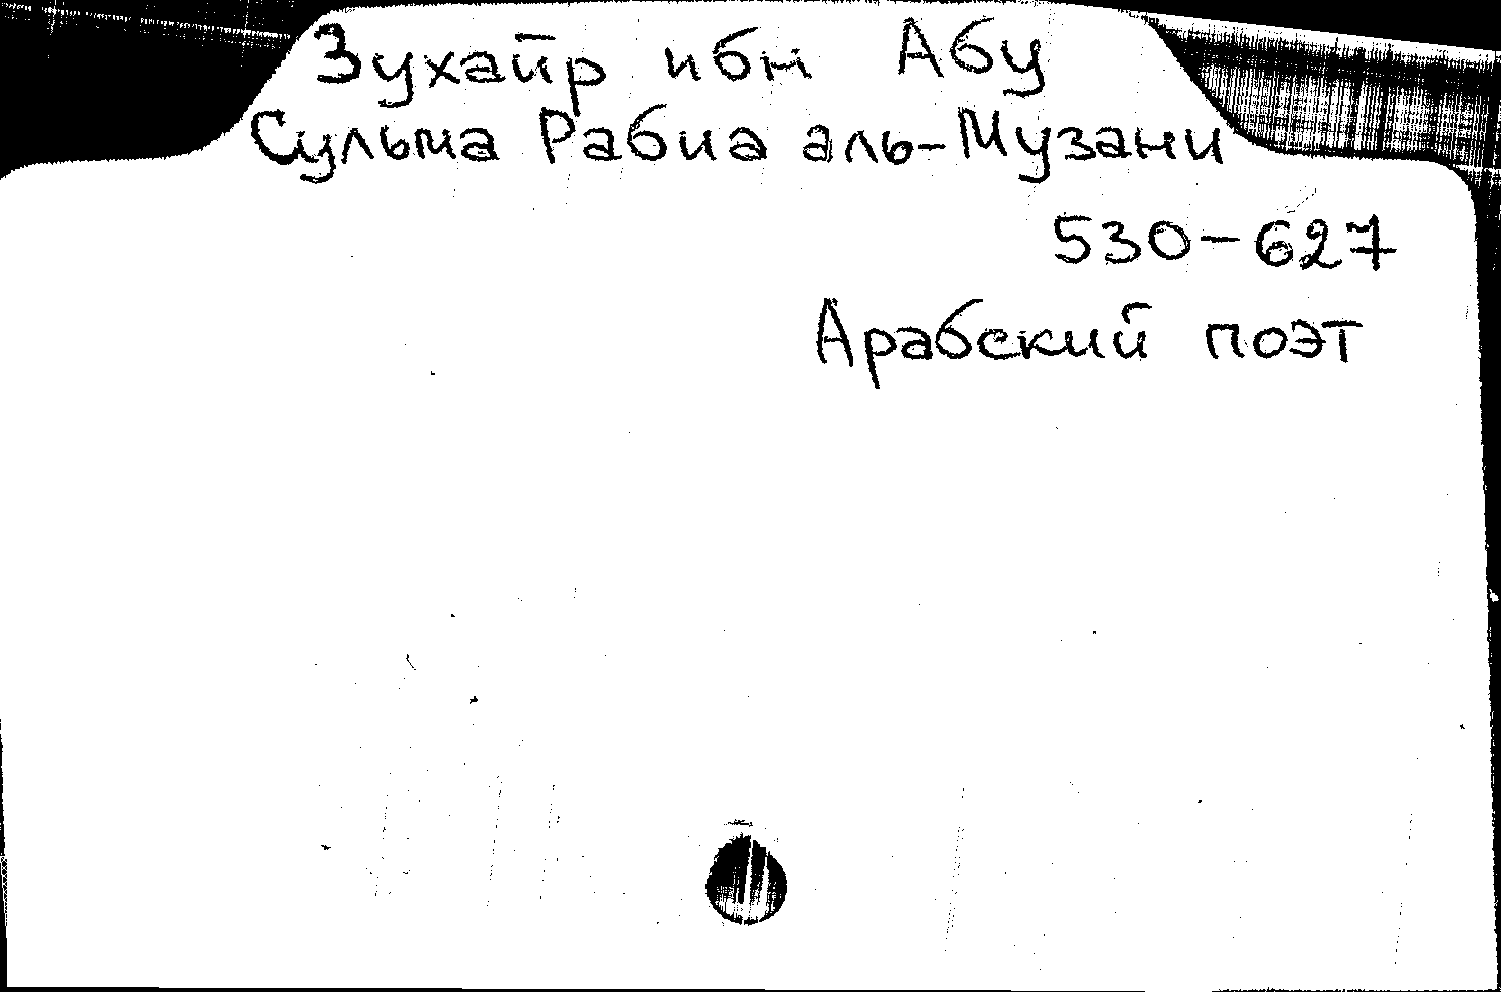 Зухайр ибн Абу
Сульма Рабиа аль-Музани
530-627
Арабский поэт